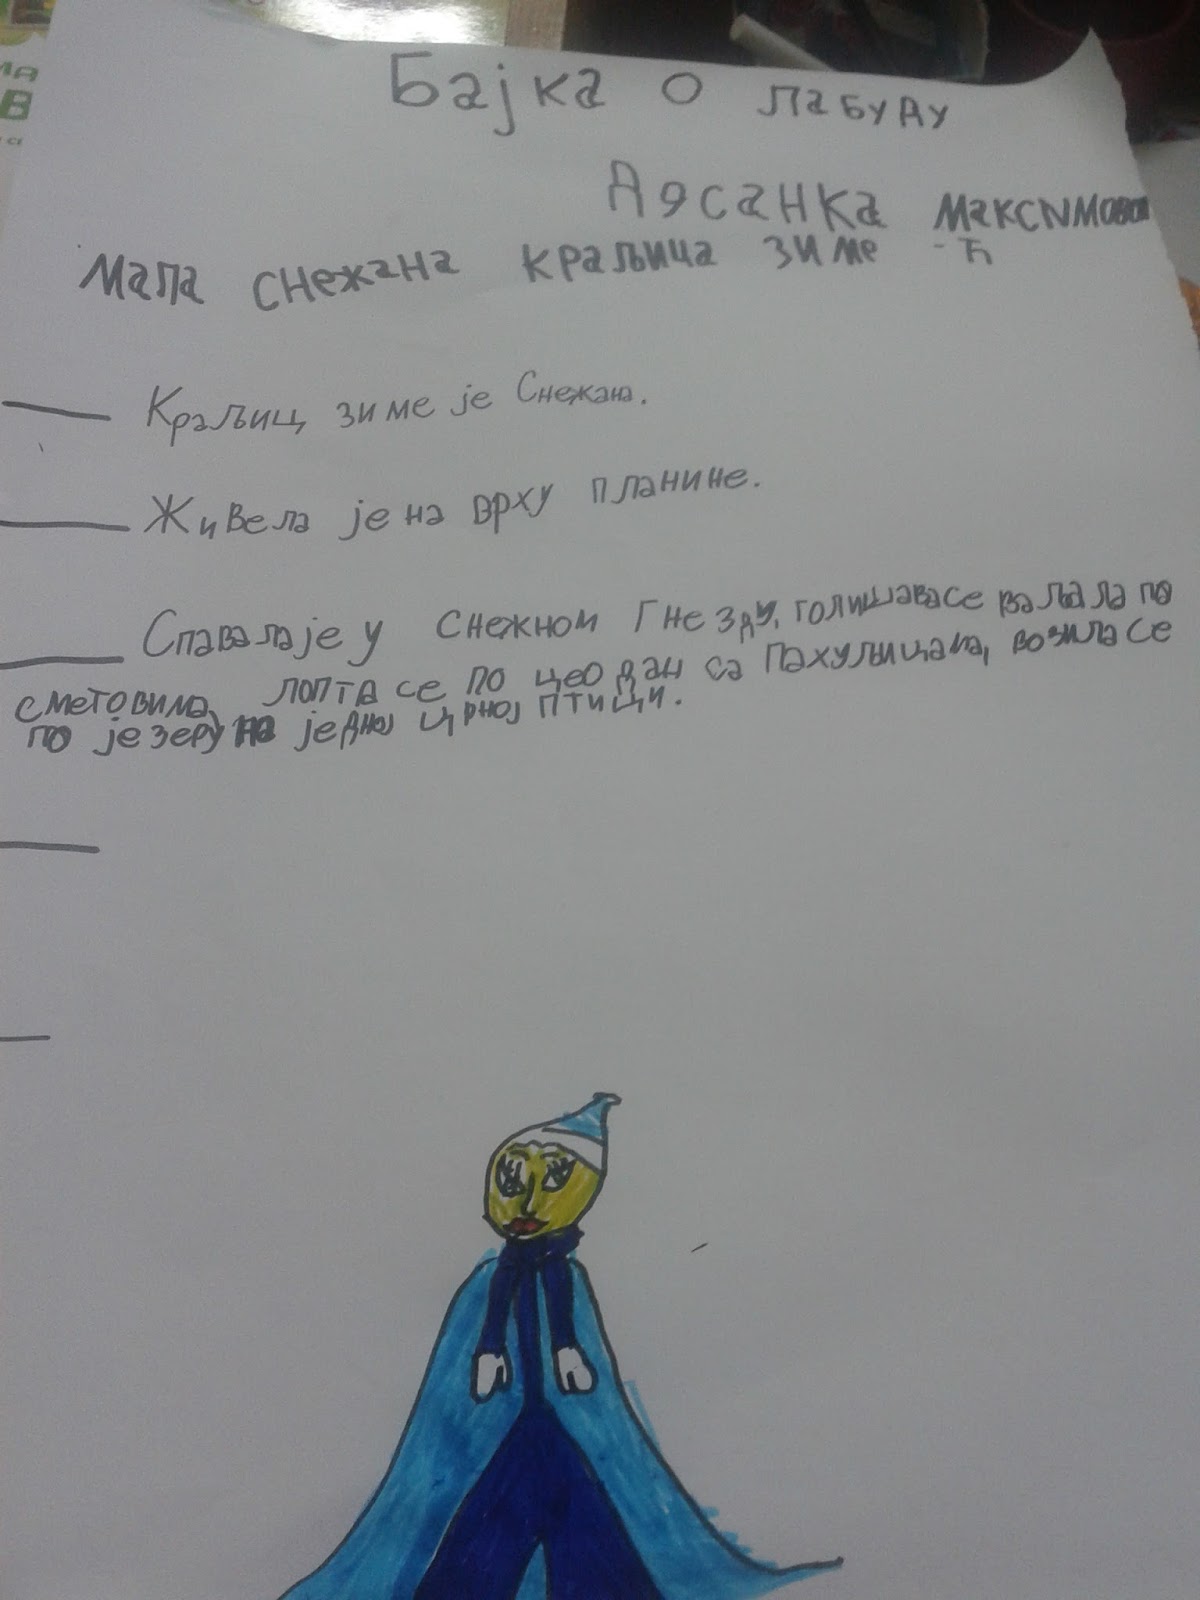 Бајка о лабуду
Десанка Максимови
Мала Снежана краљица зиме -ћ
Краљиц зиме је Снежана.
Живела је на врху планине.
Спавала је у снежном гнезду, голишава се ваљала по
сметовима, лопта се по цео дан са пахуљицама, возила се
по језеру на једној црној птици.